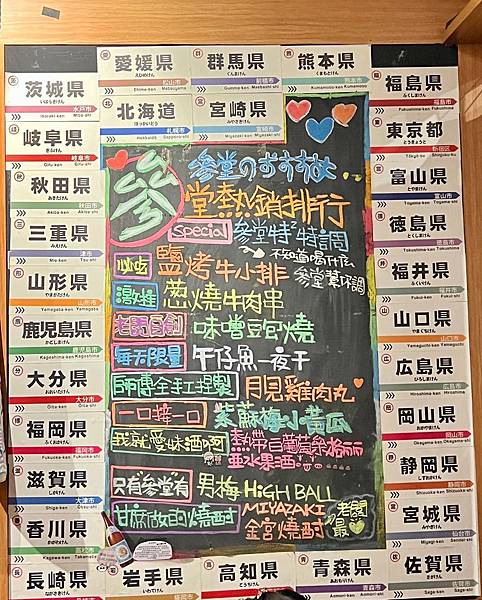 愛媛県
えひめけん
松山市
群馬県
ぐんまけん
前橋市
熊本県
くまもとけん
熊本市
北海道
ほっかいどう
札幌市
宮崎県
みやざきけん
宮崎市
茨城県
いばらきけん
水戸市
岐阜県
ぎふけん
岐阜市
秋田県
あきたけん
秋田市
三重県
みえけん
津市
山形県
やまがたけん
山形市
鹿児島県
かごしまけん
鹿児島市
大分県
おおいたけん
大分市
福岡県
ふくおかけん
福岡市
滋賀県
しがけん
大津市
香川県
かがわけん
高松市
長崎県
ながさきけん
参
参堂のおすすめ
堂熱銷排行
Special
参堂特"特調
不知道喝什伝
参堂幫你調
必吃
鹽烤牛小排
激推
蔥燒牛肉串
老闆自創
味噌豆皰燒
每天限量
午仔魚一夜干
師傅全手工捏製
月見雞肉丸
一口接一口
紫蘇梅小黃瓜
我就愛妹酒啊
熱帶白葡萄桑格麗亞水果酒
只有參堂有
男梅HiGH BALL
甘蔗做的燒酎
MIYAZAKI
金宮燒酎
老闆最♥
福島県
ふくしまけん
福島市
東京都
とうきょうと
新宿区
富山県
とやまけん
富山市
徳島県
とくしまけん
徳島市
福井県
ふくいけん
福井市
山口県
やまぐちけん
山口市
広島県
ひろしまけん
広島市
岡山県
おかやまけん
岡山市
静岡県
しずおかけん
静岡市
宮城県
みやぎけん
仙台市
佐賀県
さがけん
佐賀市
岩手県
いわてけん
高知県
こうちけん
青森県
あおもりけん
青森市